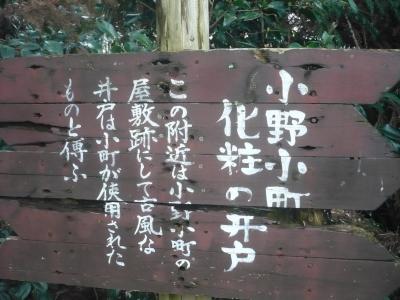 小野小町
化粧の井戸
この附近は小野小町の
屋敷跡にして古風な
井戸は小町が使用された
ものと傳ふ